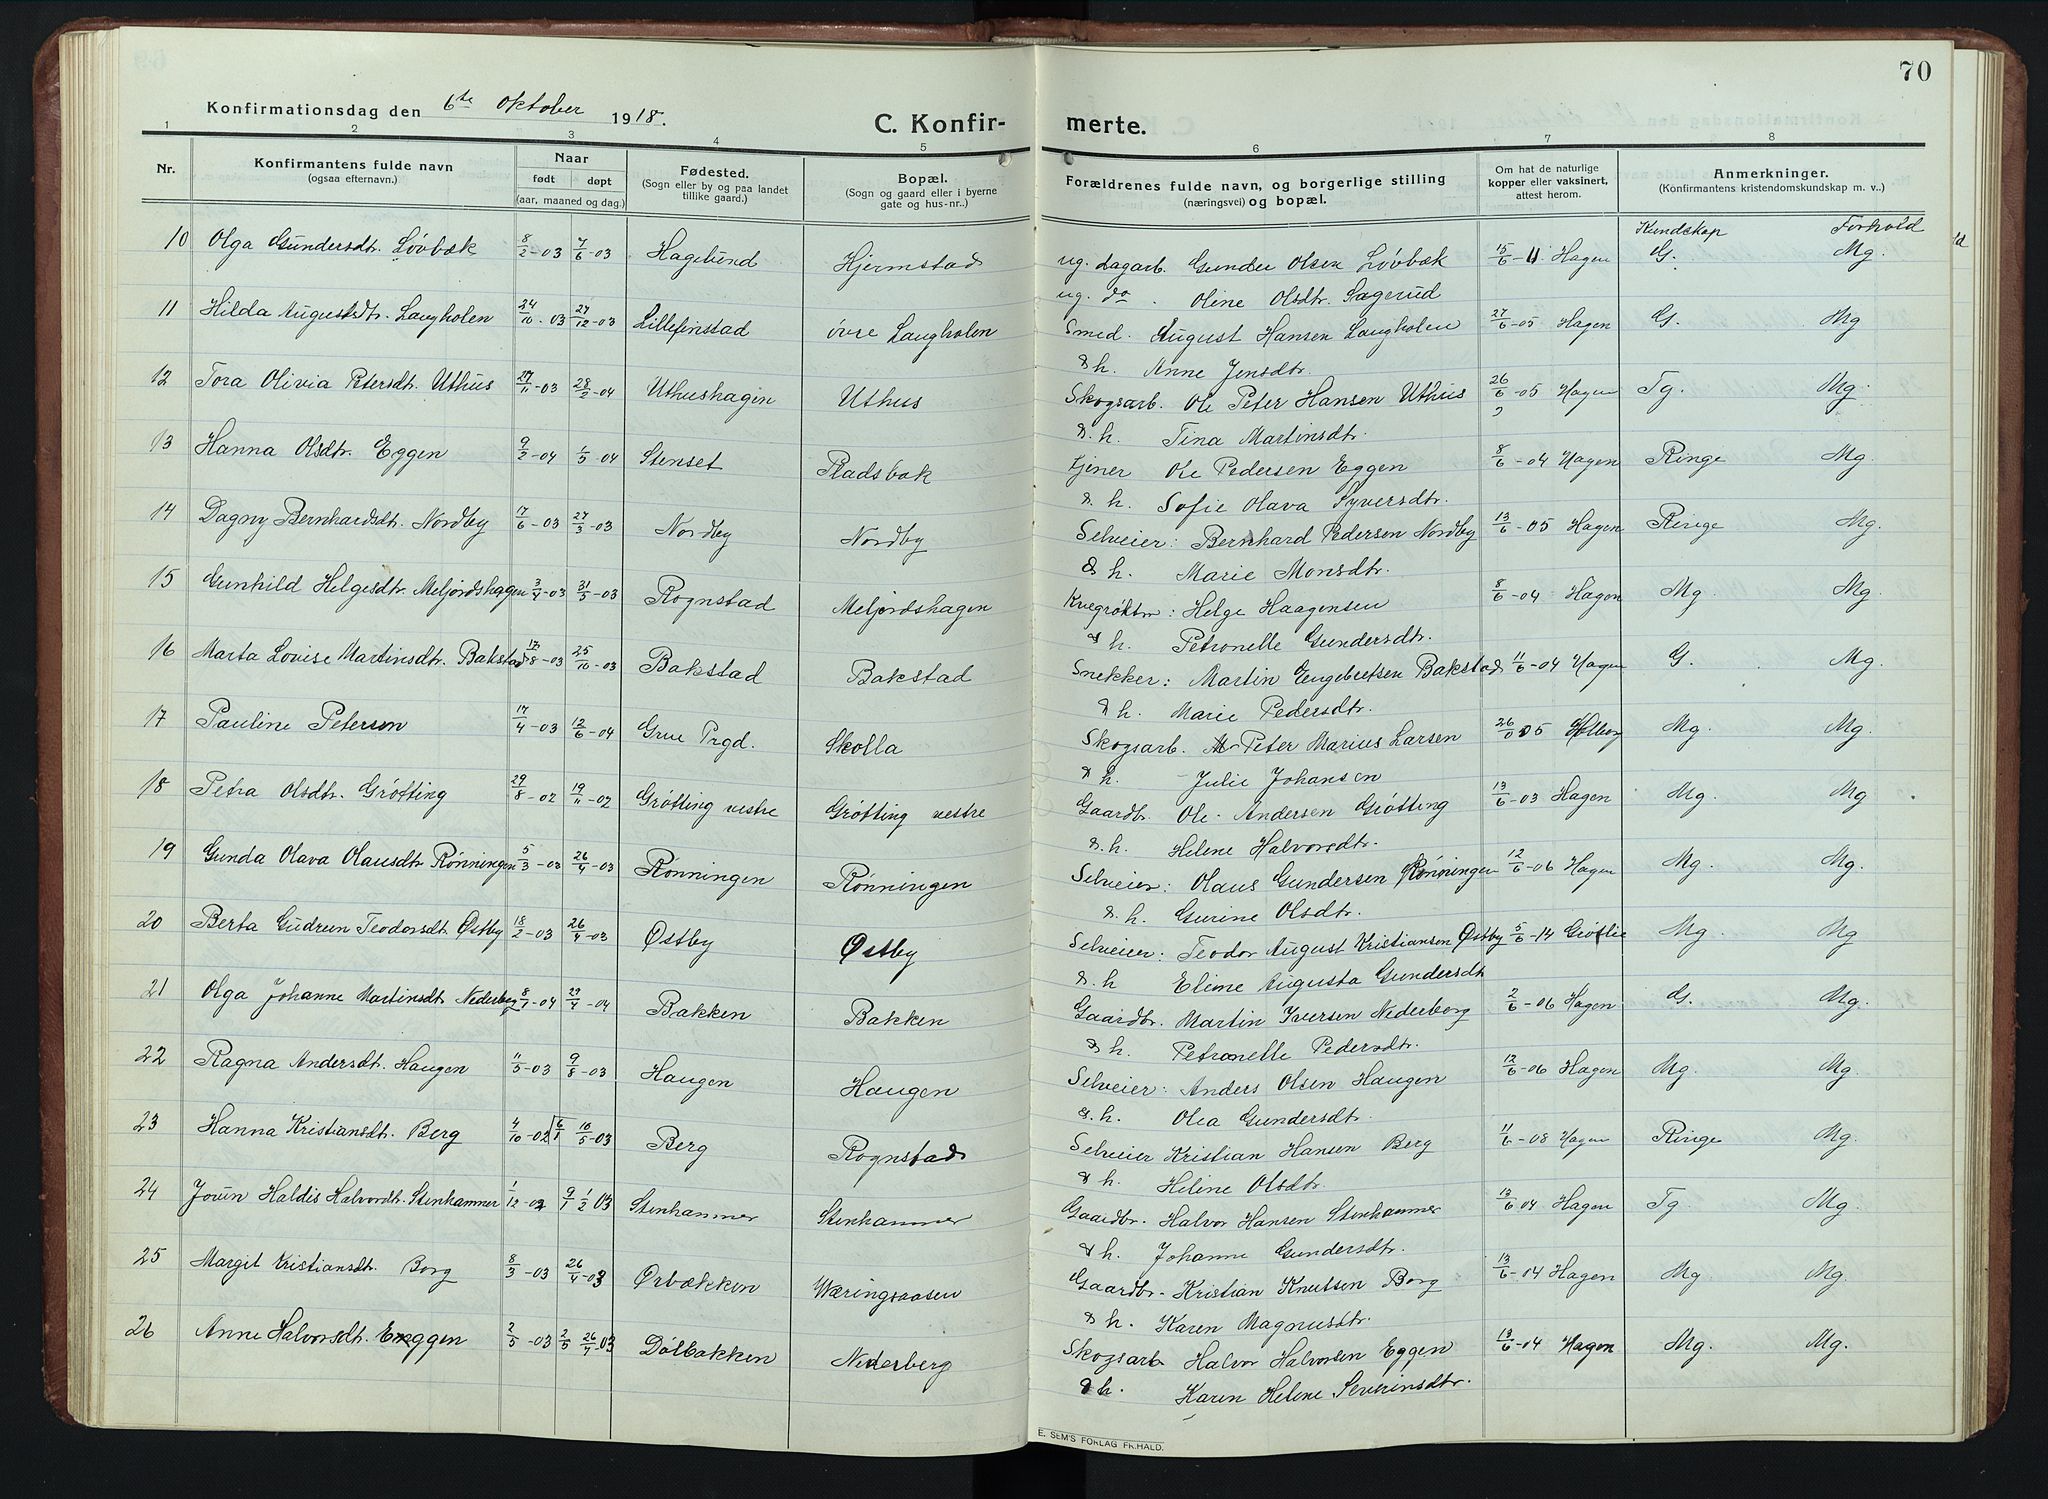 70
Konfirmationsdag den 6te oktober 1918.
C. Konfir-
merte.
1 2 3 4 5 6 7 8
Nr.
Konfirmantens fulde navn
(ogsaa efternavn.)
Naar
født døpt
(aar, maaned og dag.)
Fødested.
(Sogn eller by og paa landet
tillike gaard.)
Bopæl.
(Sogn og gaard eller i byerne
gate og hus-nr..)
Forældrenes fulde navn, og borgerlige stilling
(næringsvei) og bopæl.
Om hat de naturlige
kopper eller vaksinert,
attest herom.
Anmerkninger.
(Konfirmantens kristendomskundskap m. v..)
Kundskap Forhold
10 Olga Gundersdtr. Løvbæk 8/2-03 7/6-03 Hagelund Hjermstad ug. dagarb. Gunder Olsen Løvbæk 15/6-11 Hagen G. Mg.
ug. do. Oline Olsdtr. Sagerud
11 Hilda Augustsdtr. Laugholen 24/10-03 27/12-03 Lillefinstad øvre Laugholen Smed. August Hansen Laugholen 27/6-05 Hagen G. Mg
& h. Anne Jensdtr.
12 Tora Olivia Petersdtr. Uthus 27/11-03 28/2-04 Uthushagen Uthus Skogsarb. Ole Peter Hansen Uthus 26/6-05 Hagen Tg. Mg.
& h. Tina Martinsdtr.
13 Hanna Olsdtr. Eggen 9/2-04 1/5-04 Stenset Pladsbak tjener Ole Pedersen Eggen 8/6-04 Hagen Ringe Mg
& h. Sofie Olava Syversdtr.
14 Dagny Bernhardsdtr. Nordby 17/6-03 27/3-03 Nordby Nordby Selveier: Bernhard Pedersen Nordby 13/6-05 Hagen Ringe Mg.
& h. Marie Monsdtr.
15 Gunhild Helgesdtr. Meljordshagen 3/4-03 31/5-03 Rognstad Meljordshagen Kvegrøktr: Helge Haagensen 8/6-04 Hagen Mg. Mg.
& h. Petronelle Gundersdtr.
16 Marta Lovise Martinsdtr. Bakstad 17/8-03 25/10-03 Bakstad Bakstad Snekker: Martin Engebretsen Bakstad 11/6-04 Hagen G. Mg.
& h. Marie Pedersdtr.
17 Pauline Petersen 17/4-03 12/6-04 Grue Prgd. Skolla Skogsarb. Peter Marius Larsen Mg. Mg.
& h. Julie Johansen
18 Petra Olsdtr. Grøtting 29/8-02 19/11-02 Grøtting vestre Grøtting vestre Gaardbr. Ole Andersen Grøtting 13/6-03 Hagen Mg. Mg
& h. Helene Halvorsdtr.
19 Gunda Olava Olausdtr Rønningen 5/3-03 26/4-03 Rønningen Rønningen Selveier: Olaus Gundersen Rønningen 12/6-06 Hagen Mg. Mg.
& h. Gurine Olsdtr.
20 Berta Gudrun Teodorsdt. Østby 18/2-03 26/4-03 Østby Østby Selveier: Teodor August Kristiansen Østby 5/6-14 Grøtlie Mg. Mg
& h Eline Augusta Gundersdt
21 Olga Johanne Martinsdt. Nederberg 8/1-04 29/4-04 Bakken Bakken Gaardbr. Martin Iversen Nederberg 2/6-06 Hagen G. Mg.
& h. Petronelle Pedersdtr.
22 Ragna Andersdtr. Haugen 11/5-03 9/8-03 Haugen Haugen Selveier: Anders Olsen Haugen 12/6-06 Hagen Mg. Mg.
& h. Olea Gundersdtr.
23 Hanna Kristiansdtr. Berg 4/10-02 6/1 10/5-03 Berg Rognstad Selveier Kristian Hansen Berg 11/6-08 Hagen Ringe Mg.
& h. Heline Olsdtr.
24 Jorun Haldis Halvordtr. Stenhammer 1/12-02 9/1 1/2 03 Stenhammer Stenhammer Gaardbr. Halvor Hansen Stenhammer 13/6 04 Hagen Tg. Mg.
& h. Johanne Gundersdtr.
25 Margit Kristiansdtr. Borg 8/3-03 26/4-03 Ørbækken Wæringsaasen Gaardbr. Kristian Knutsen Borg 13/6-04 Hagen Mg. Mg.
& h. Karen Magnusdtr.
26 Anne Halvorsdtr. Eggen 2/3-03 2/5 26/4-03 Dølbakken Nederberg Skogsarb Halvor Halvorsen Eggen 13/6-04 Hagen Mg. Mg.
& h. Karen Helene Severinsdtr.
E. SEM'S FORLAG FR.HALD.